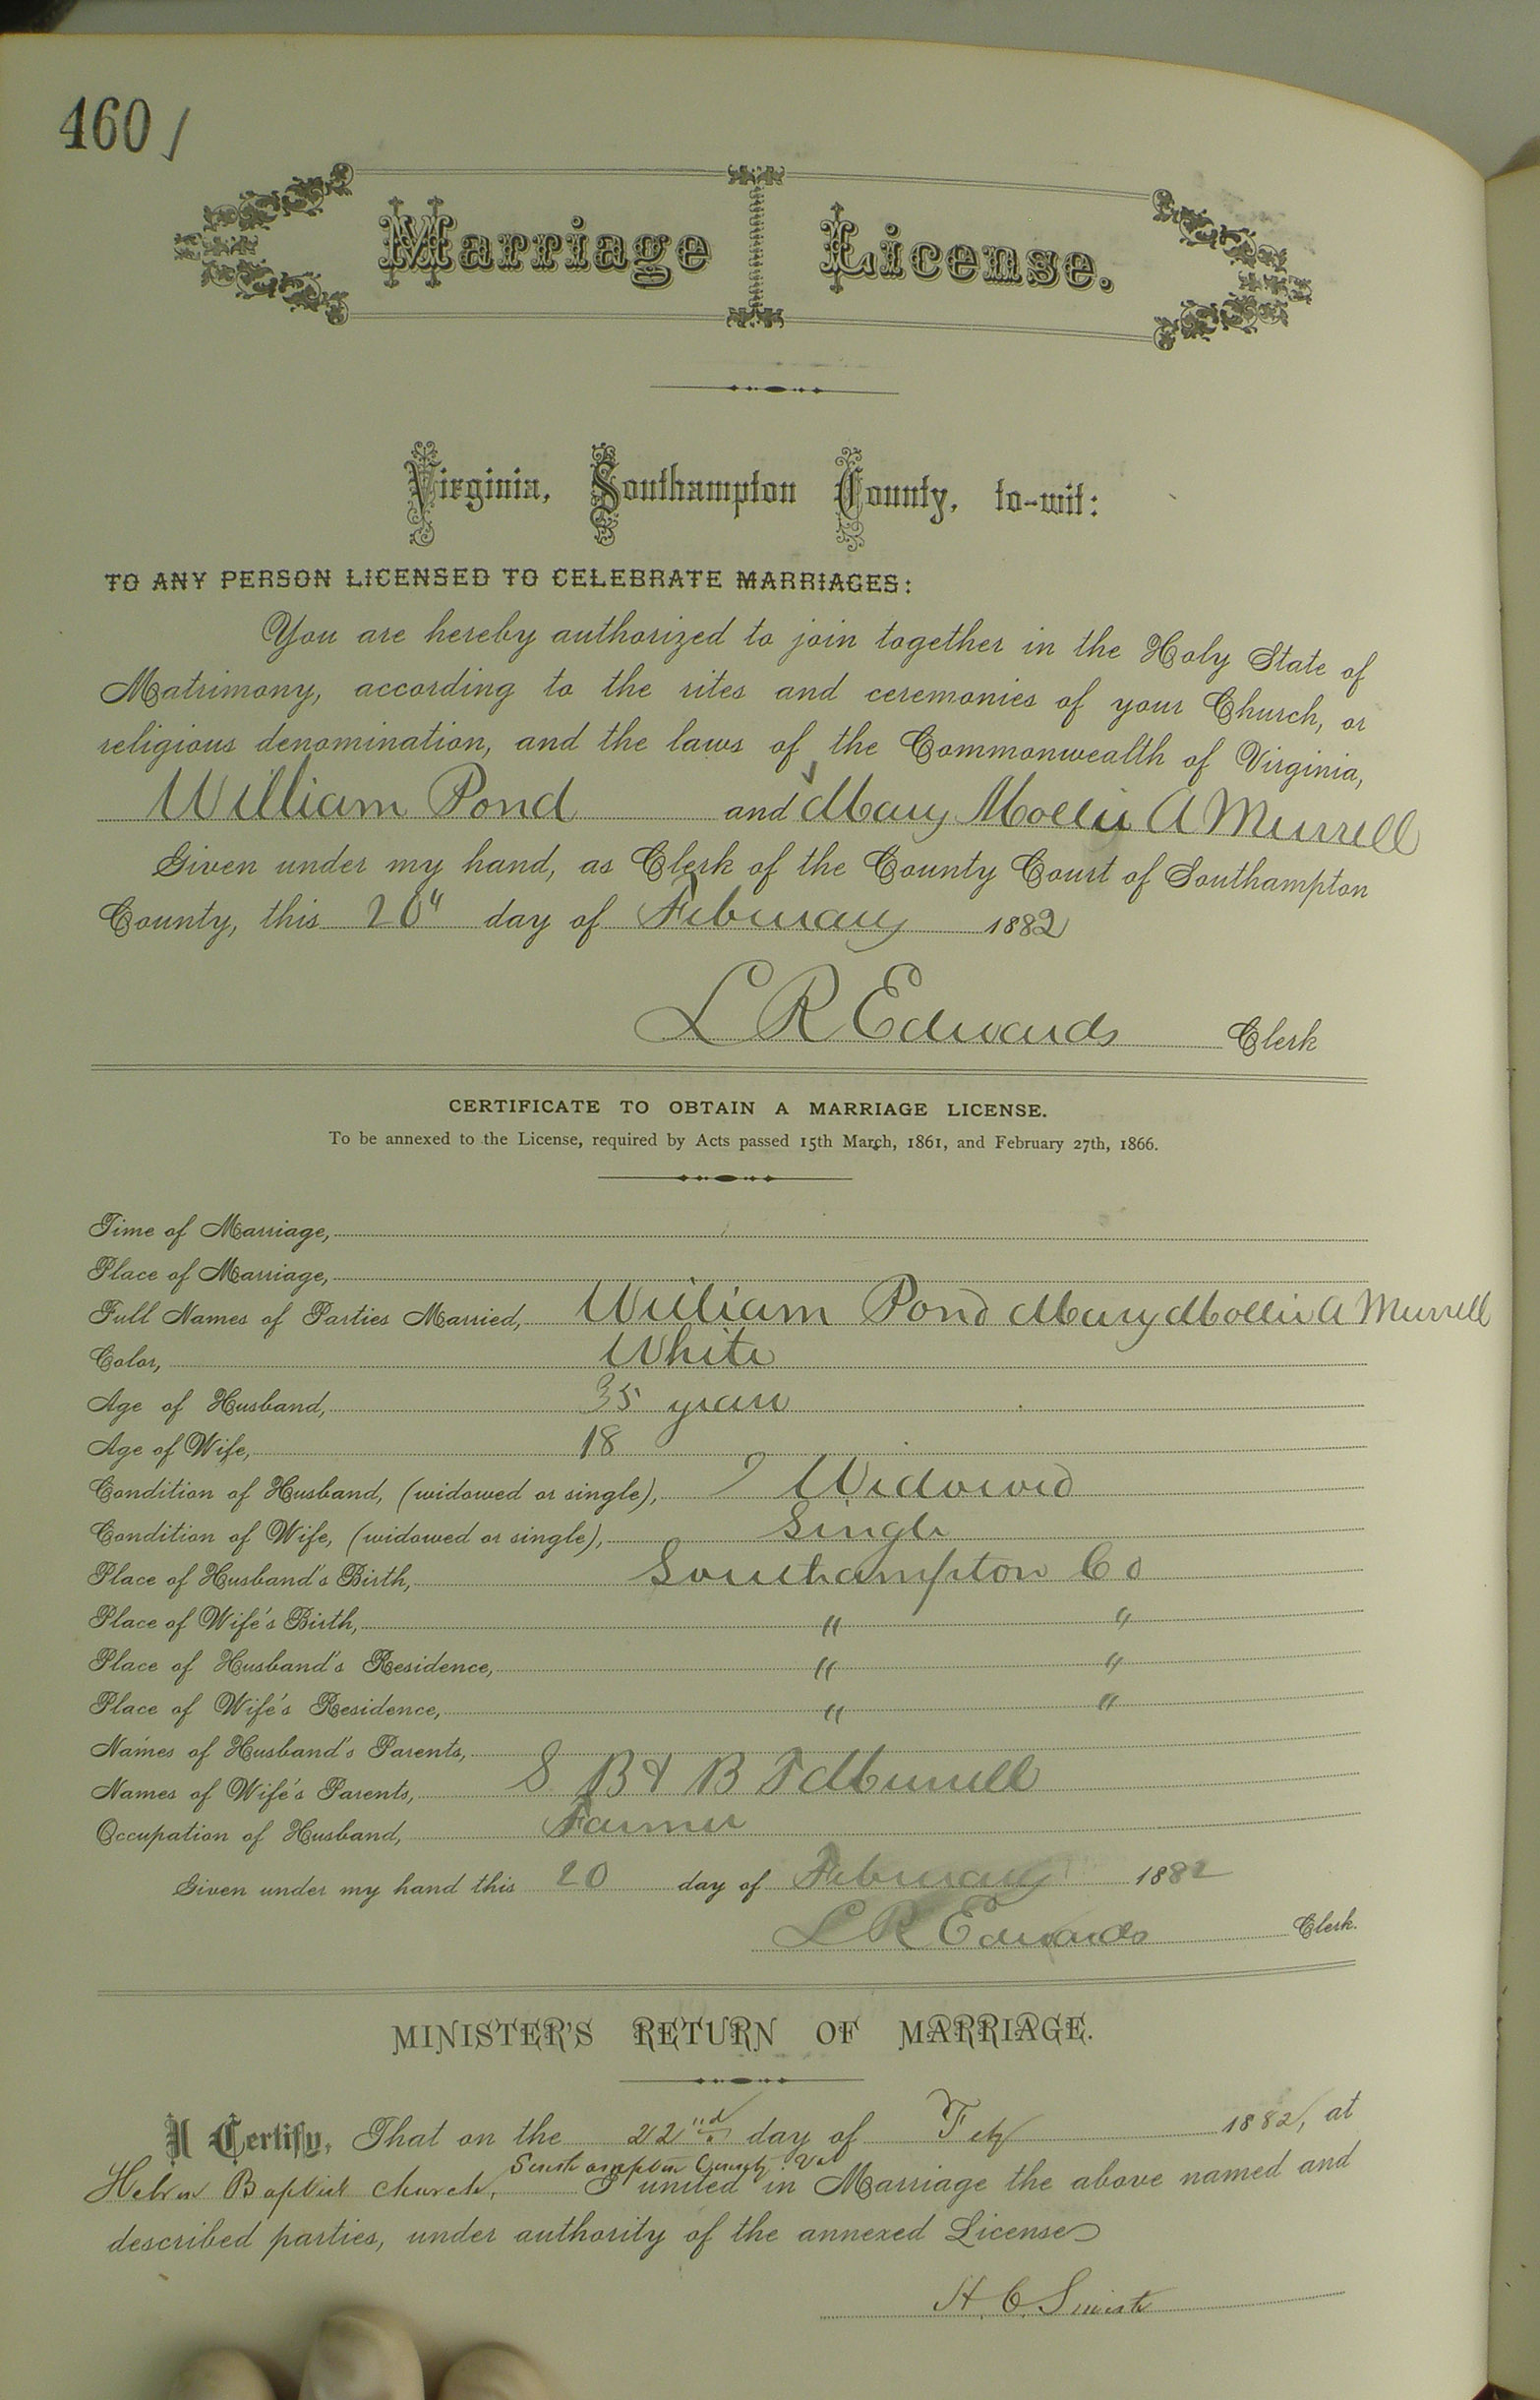 460
Marriage License.
Virginia, Southampton County, to-wit:
TO ANY PERSON LICENSED TO CELEBRATE MARRIAGES:
You are hereby authorized to join together in the Holy State of
Matrimony, according to the rites and ceremonies of your Church, or
religious denomination, and the laws of the Commonwealth of Virginia,
William Pond and Mary Mollie A Murrell
Given under my hand, as Clerk of the County Court of Southampton
County, this 20" day of February 1882
L R Edwards Clerk
CERTIFICATE TO OBTAIN A MARRIAGE LICENSE.
To be annexed to the License, required by Acts passed 15th March, 1861, and February 27th, 1866.
Time of Marriage,
Place of Marriage,
Full Names of Parties Married, William Pond Mary Mollie A Murrell
Color, White
Age of Husband, 35 years
Age of Wife, 18
Condition of Husband, (widowed or single), Widowed
Condition of Wife, (widowed or single), Single
Place of Husband's Birth, Southampton Co
Place of Wife's Birth, " "
Place of Husband's Residence, " "
Place of Wife's Residence, " "
Names of Husband's Parents,
Names of Wife's Parents, S B & B F Murrell
Occupation of Husband, Farmer
Given under my hand this 20 day of February 1882
L R Edwards Clerk.
MINISTER'S RETURN OF MARRIAGE.
I Certify, That on the 22nd day of Feb 1882, at
Southampton County Va
Baptist Church, I united in Marriage the above named and
described parties, under authority of the annexed License
H. C.